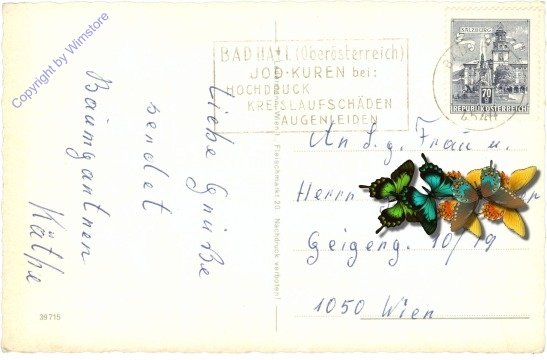 Copyright by Wimstore
Liebe Grüße
sendet
Baumgartner
Käthe
39715
Wien I, Fleischmarkt 20. Nachdruck verboten!
BAD HALL (Oberösterreich)
JOD-KUREN bei:
HOCHDRUCK
KREISLAUFSCHÄDEN
AUGENLEIDEN
SALZBURG
70 g
REPUBLIK ÖSTERREICH
4540
An S. g. Frau u.
Herrn
Geigeng. 10/19
1050 Wien